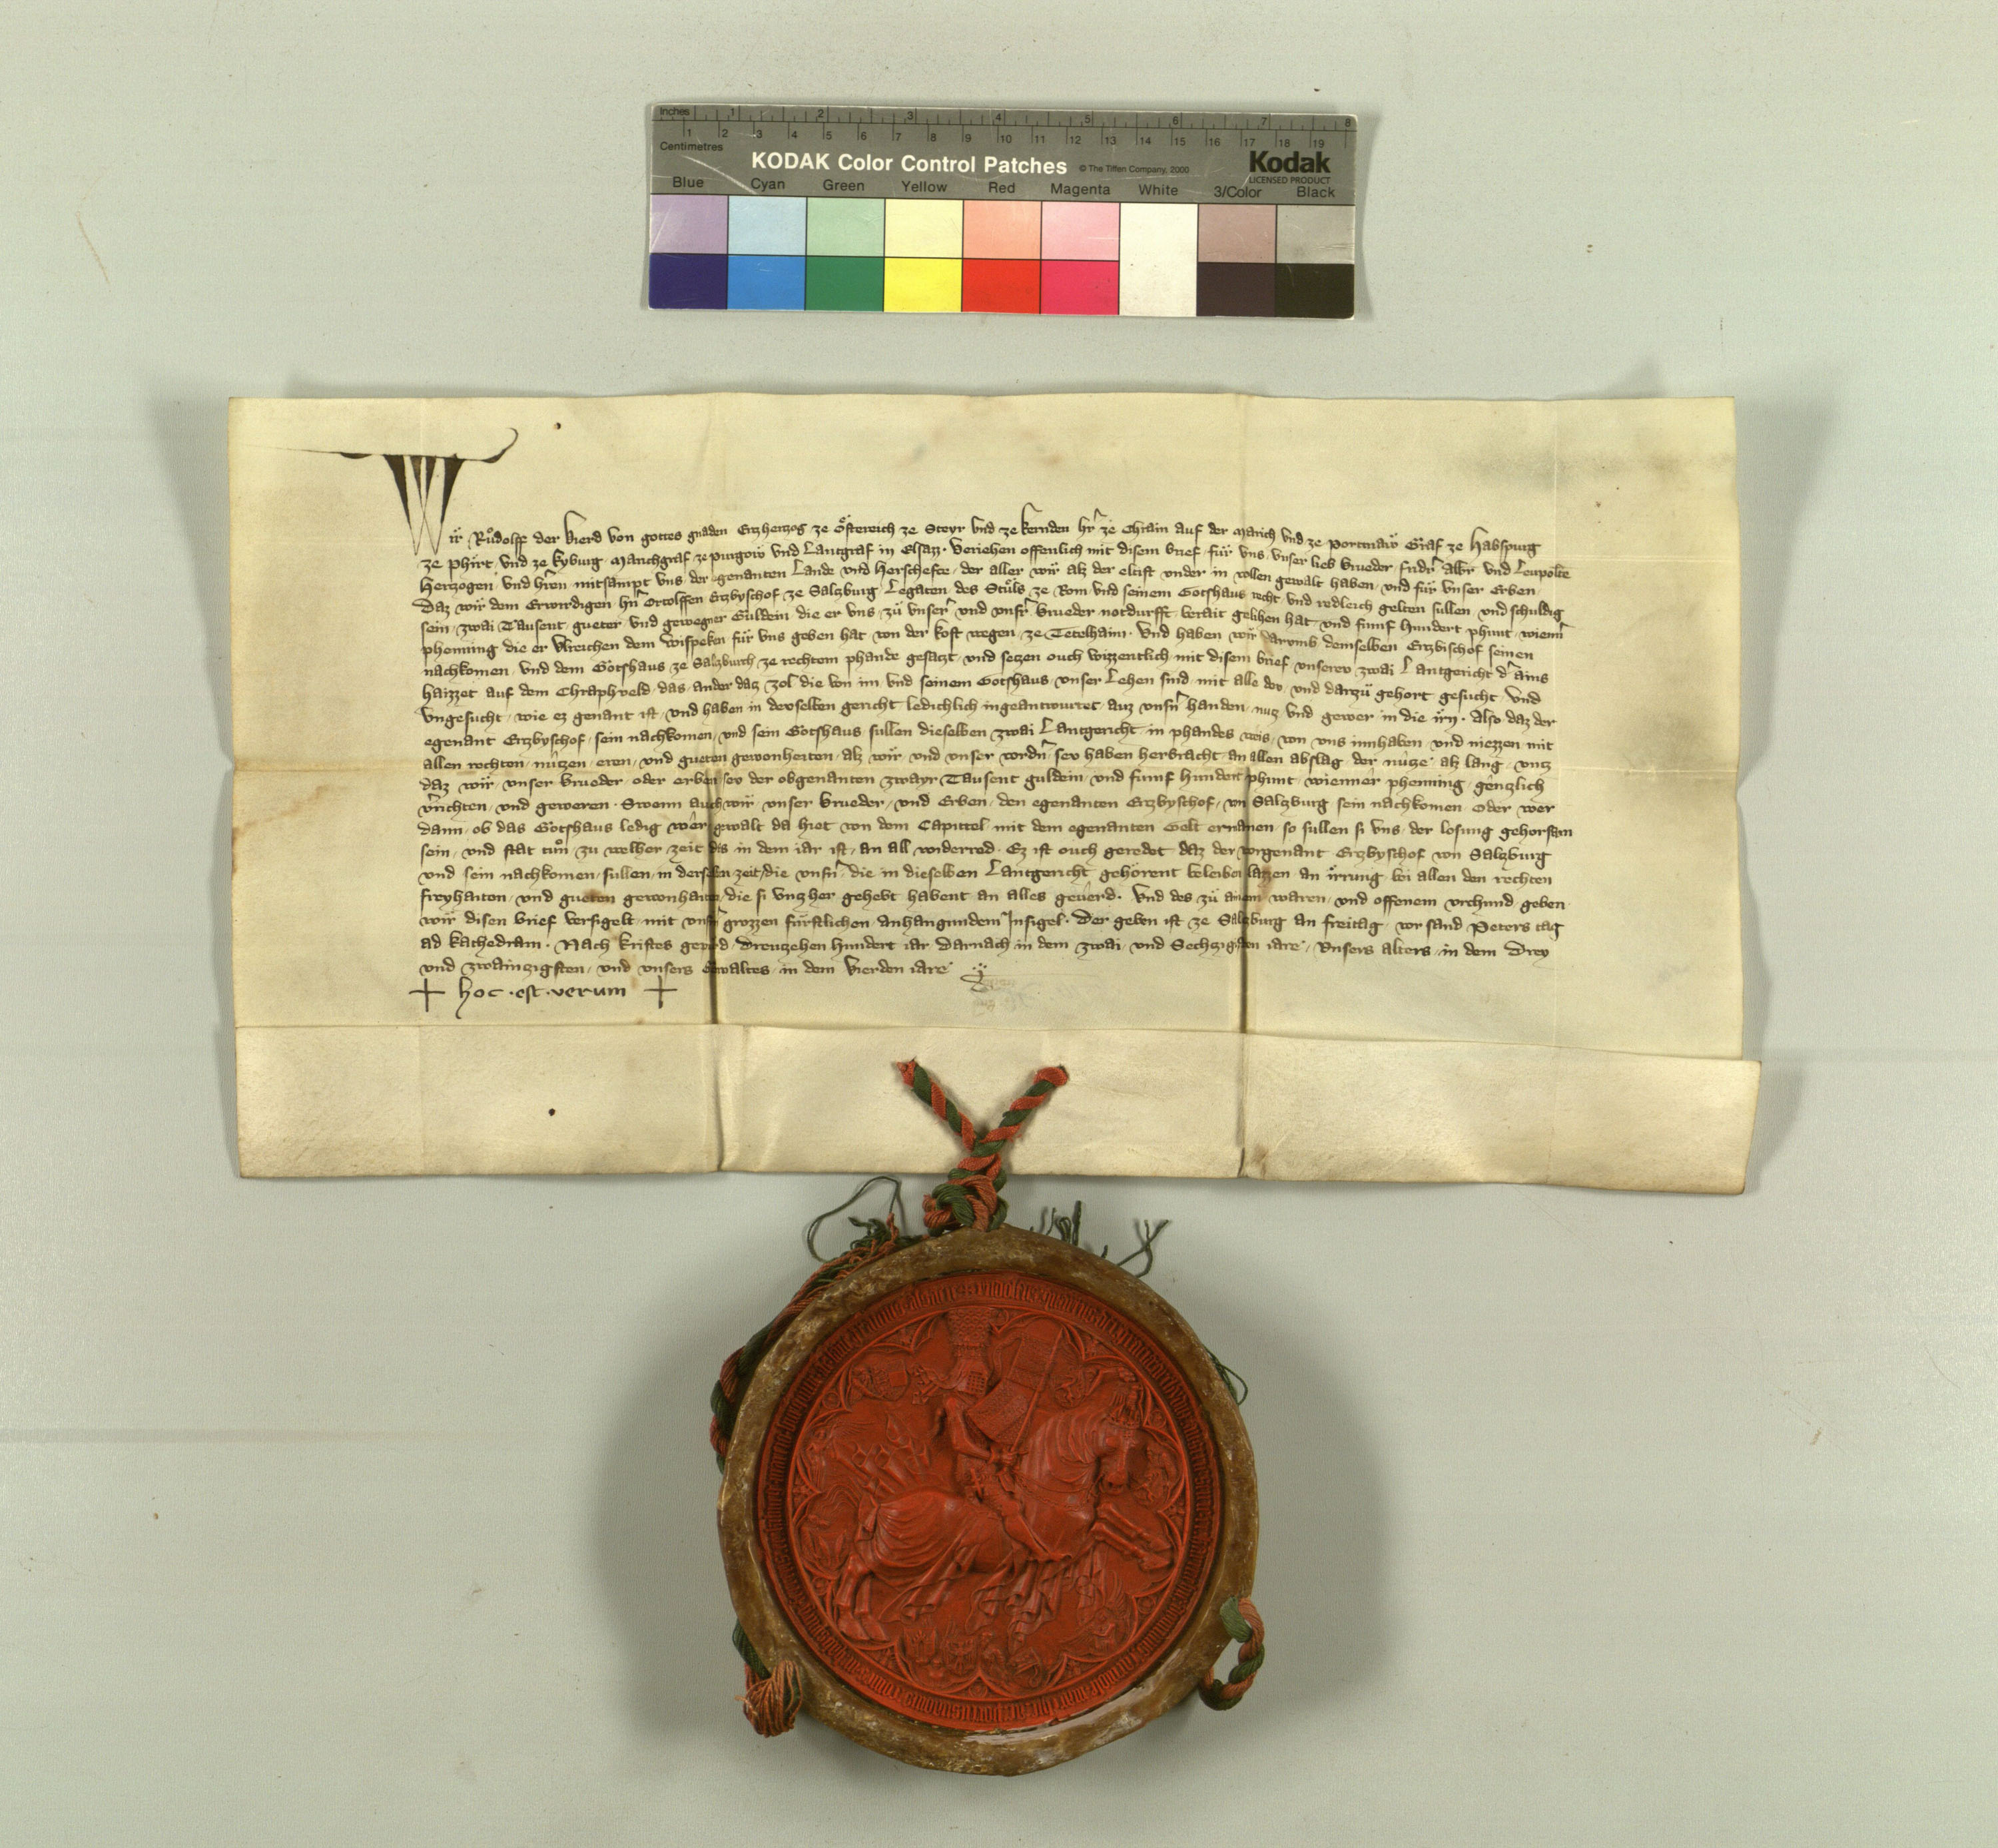 Inches 1 2 3 4 5 6 7 8
1 2 3 4 5 6 7 8 9 10 11 12 13 14 15 16 17 18 19
Centimetres
KODAK Color Control Patches © The Tiffen Company, 2000 Kodak
LICENSED PRODUCT
Blue Cyan Green Yellow Red Magenta White 3/Color Black
Wir Růdolff der Vierd von gottes gnaden Erzherzog ze Österreich ze Steyr vnd ze kernden hr̄ ze Chrain auf der Marich vnd ze Portnaw Graf ze Habspurg
ze phirt, vnd ze kyburg, Marchgraf ze purgow vnd Lantgraf in Elsazz. Veriehen offenlich mit disem brief, für vns, vnser lieb brueder, fridr̄ Albr̄ vnd Leupolte
Herzogen vnd hr̄en mitsampt vns der egenanten Lande vnd herschefte, der aller wir alz der eltist vnder in vollen gewalt haben, vnd für vnser Erben,
Daz wir dem Erwirdigen hn̄ Ortolffen Erzbyschof ze Salzburg Legaten des Stůls ze Rom vnd seinem Gotshaus recht vnd redleich gelten sullen, vnd schuldig
sein, zwai Tausent, gueter, vnd gewegner Guldein, die er vns, zů vnser̄ vnd vnsr̄ brueder notdurfft berait gelihen hat, vnd fumf hundert phunt, wienn̄
phenning die er Vlreichen dem Wispeken für vns geben hat von der kost wegen, ze Tetelhaim. Vnd haben wir darumb demselben Erzbischof seinen
nachkomen, vnd dem Gotshaus ze Salzburch ze rechtem phande gesatzt, vnd setzen ouch wizzentlich mit disem brief vnserev zwai Lantgericht dr̄ ains
haizzet auf dem Chraphveld, das ander daz Zol die von im vnd seinem Gotshaus, vnser Lehen sind, mit alle dev, vnd darzů gehort gesucht, vnd
vngesucht, wie ez genant ist, vnd haben in dewselben gericht ledichlich ingeantwurtet, auz vnsn̄ handen, nutz vnd gewer in die irn. Also daz der
egenant Erzbyschof, sein nachkomen, vnd sein Gotshaus sullen dieselben zwai Lantgericht in phandes weis, von vns innhaben, vnd niezzen mit
allen rechten, nützen, eren, vnd gueten gewonheiten, alz wir vnd vnser vordn̄ sev haben herbracht, an allen abslag, der nütze alz lang, vntz
daz wir, vnser brueder, oder erben, sev der obgenanten zwayr Tausent guldein, vnd fumf hundert phunt, wienner phenning, gênzlich
vrichten, vnd geweren. Swenn auch wir, vnser brueder, vnd Erben, den egenanten Erzbyschof, von Salzburg sein nachkomen, Oder wer
dann, ob das Gotshaus ledig wêr, gewalt da hiet von dem Capittel, mit dem egenanten Gelt ermanen, so sullen si vns, der losung gehorsam
sein, vnd stat tůn, zu welher zeit das in dem iar ist, an all widerred. Ez ist ouch geredet, daz der vorgenant Erzbyschof von Salzburg
vnd sein nachkomen, sullen, in derselben zeit, die vnsn̄, die in dieselben Lantgericht gehörent beleiben lazzen, an irrung, bei allen den rechten
freyhaiten, vnd gueten gewonhaiten, die si vntzher gehebt habent an alles gevêrd. Vnd des zů ainem waren, vnd offenem vrchund, geben
wir disen brief versigelt, mit vnsm̄ grozzen fürstlichen anhangundem Insigel. Der geben ist ze Salzburg an freitag, vor sand Peters tag
ad kathedram. Nach kristes gepurd, dreutzehen hundert iar darnach in dem zwai, vnd Sechzigisten iare, vnsers alters, in dem Drey
vnd zwainzigsten, vnd vnsers gewaltes, in dem vierden iare
+ hoc . est . verum +